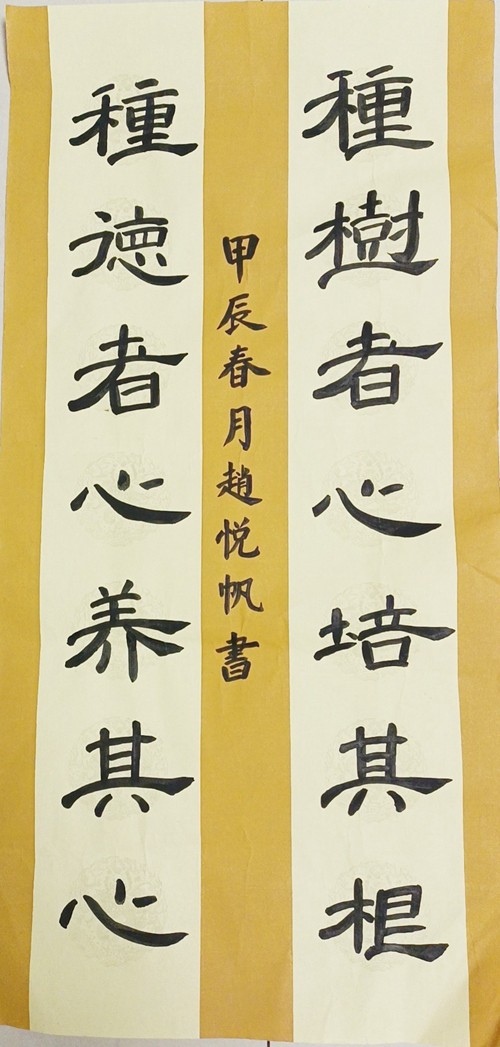 種樹者心培其根
種德者心养其心
甲辰春月趙悦帆書